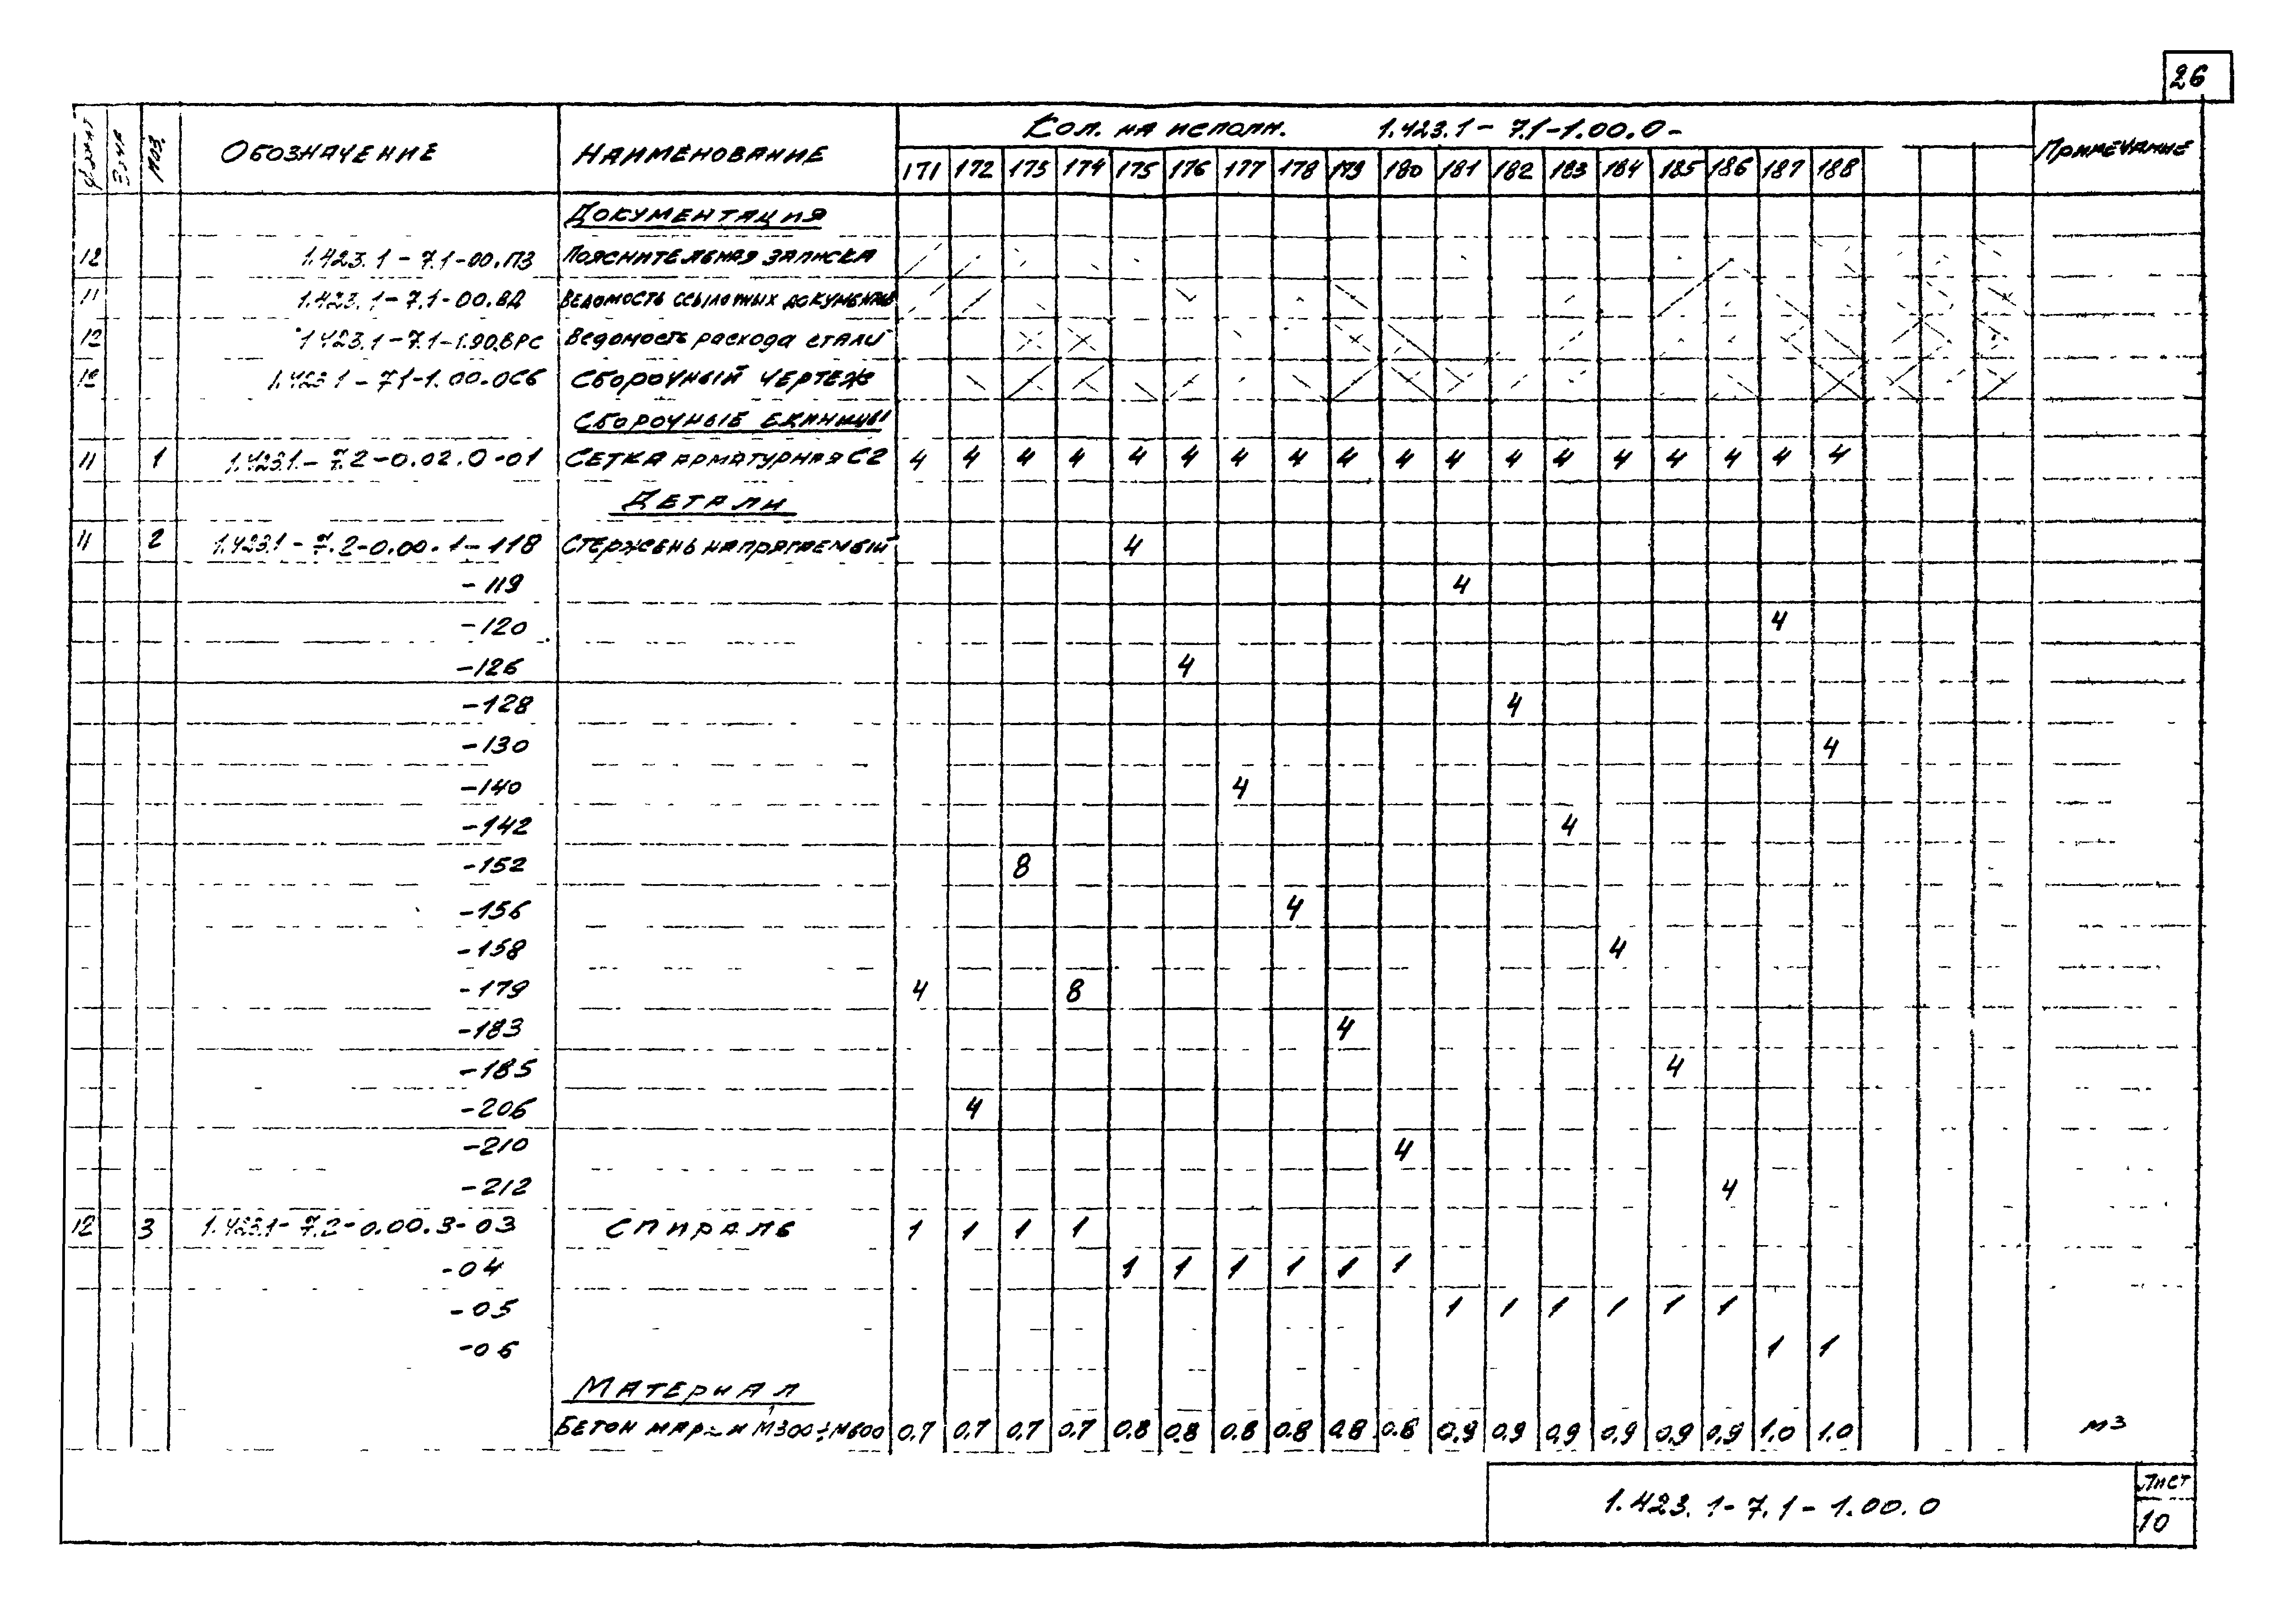 26
Формат Зона Поз. Обозначение Наименование Кол. на исполн. 1.423.1-7.1-1.00.0- Примечание
171 172 173 174 175 176 177 178 179 180 181 182 183 184 185 186 187 188
Документация
12 1.423.1-7.1-00.ПЗ Пояснительная записка
11 1.423.1-7.1-00.ВД Ведомость ссылочных документов
12 1.423.1-7.1-1.90.ВРС Ведомость расхода стали
12 1.423.1-7.1-1.00.0СБ Сборочный чертеж
Сборочные единицы
11 1 1.423.1-7.2-0.02.0-01 Сетка арматурная С2 4 4 4 4 4 4 4 4 4 4 4 4 4 4 4 4 4 4
Детали
11 2 1.423.1-7.2-0.00.1-118 Стержень напрягаемый 4
-119 4
-120 4
-126 4
-128 4
-130 4
-140 4
-142 4
-152 8
-156 4
-158 4
-179 4 8
-183 4
-185 4
-206 4
-210 4
-212 4
12 3 1.423.1-7.2-0.00.3-03 Спираль 1 1 1 1
-04 1 1 1 1 1 1
-05 1 1 1 1 1 1
-06 1 1
Материал
Бетон марки М300÷М600 0,7 0,7 0,7 0,7 0,8 0,8 0,8 0,8 0,8 0,8 0,9 0,9 0,9 0,9 0,9 0,9 1.0 1.0 м3
1.423.1-7.1-1.00.0
Лист
10